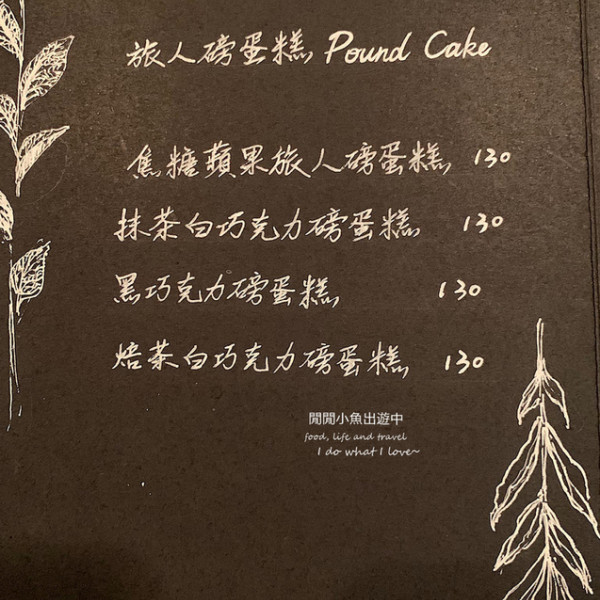 旅人磅蛋糕 Pound Cake
焦糖蘋果旅人磅蛋糕 130
抹茶白巧克力磅蛋糕 130
黑巧克力磅蛋糕 130
焙茶白巧克力磅蛋糕 130
閒閒小魚出遊中
food, life and travel
I do what I love~